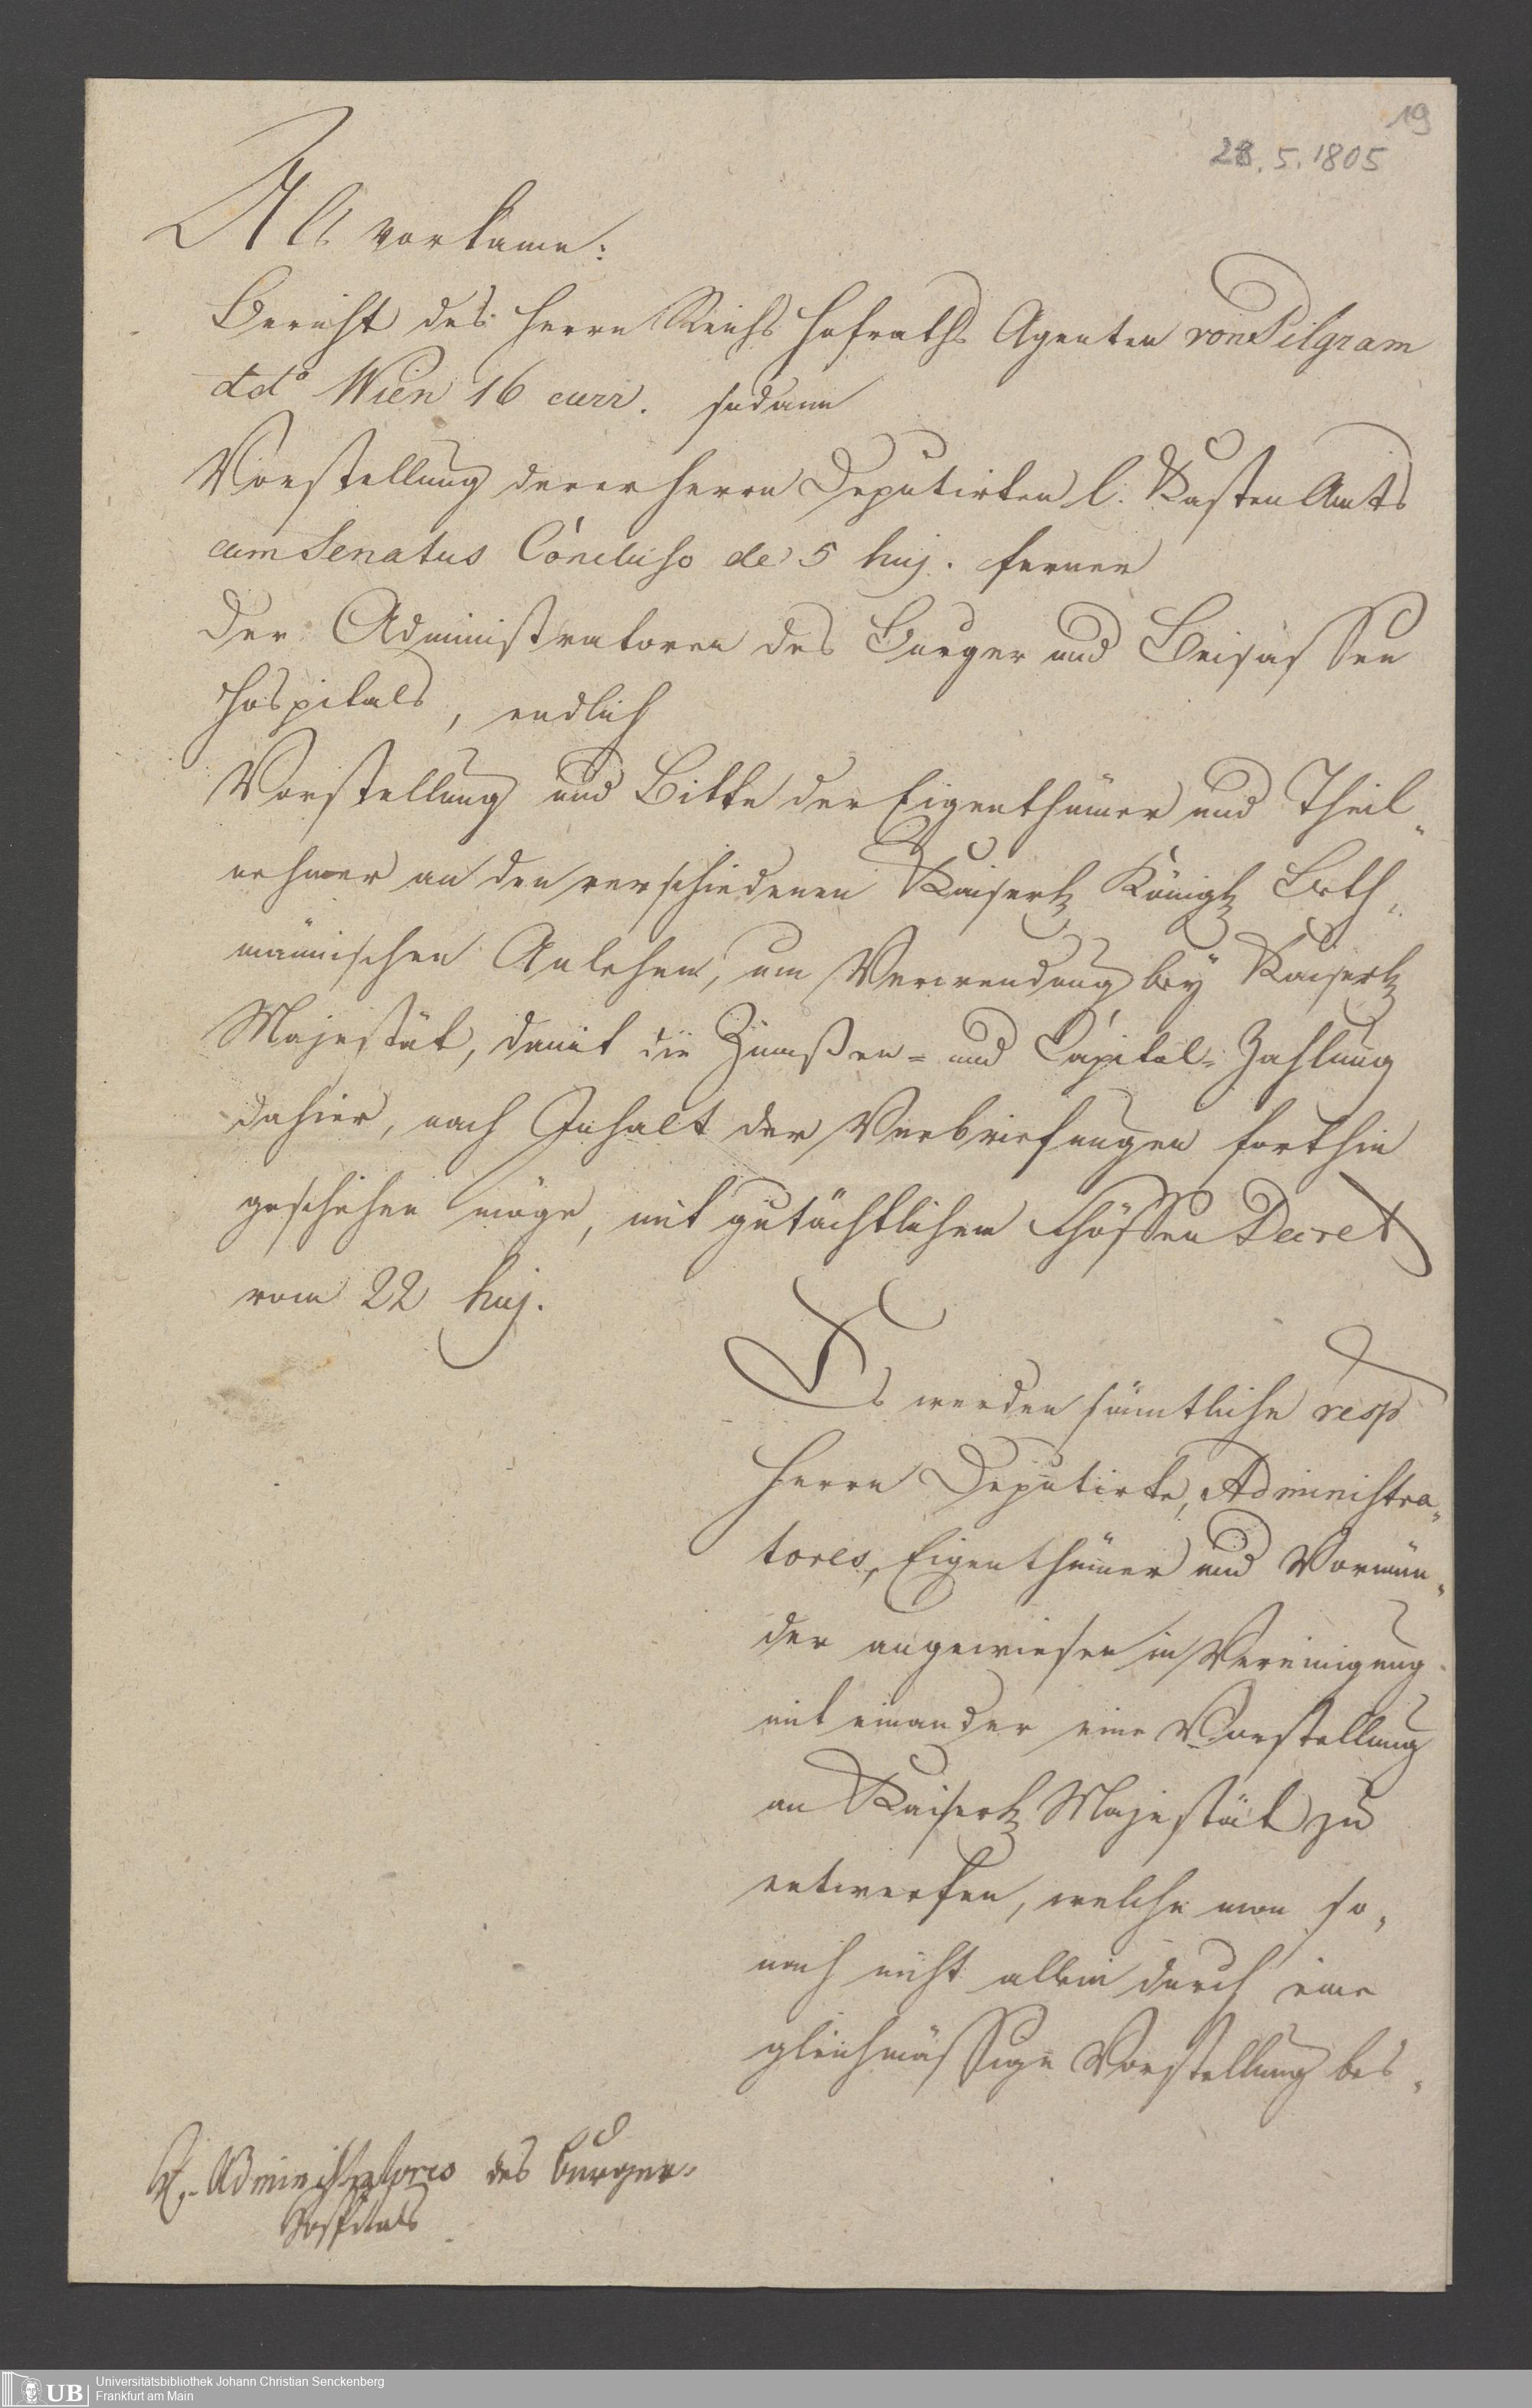 19
28.5.1805
Als vorkame:
Bericht des Herrn Reichs Hofraths Agenten von Pilgram
ddº Wien 16 curr. sodann
Vorstellung derer Herrn Deputirten l. Kasten Amts
cum Senatus Concluso de 5 huj. ferner
der Administratoren des Burger und Beisassen
Hospitals, endlich
Vorstellung und Bitte der Eigenthümer und Theil„
nehmer an den verschiedenen Kaiserl. Königl. Beth„
männischen Anlehen, um Verwendung bey Kaiserl.
Majestät, damit die Zinnßen- und Capital-Zahlung
dahier, nach Inhalt der Verbriefungen forthin
geschehen möge, mit gutächtlichem Schöffen Decret
vom 22 huj.
Es werden sämtliche resp
Herrn Deputirte, Administra„
tores, Eigenthümer und Vormün„
der angewiesen in Vereinigung
mit einander eine Vorstellung
an Kaiserl. Majestät zu
entwerfen, welche man so„
nach nicht allein durch eine
gleichmässige Vorstellung bes„
Administratores des Burger-
Hospitals
UB
Universitätsbibliothek Johann Christian Senckenberg
Frankfurt am Main